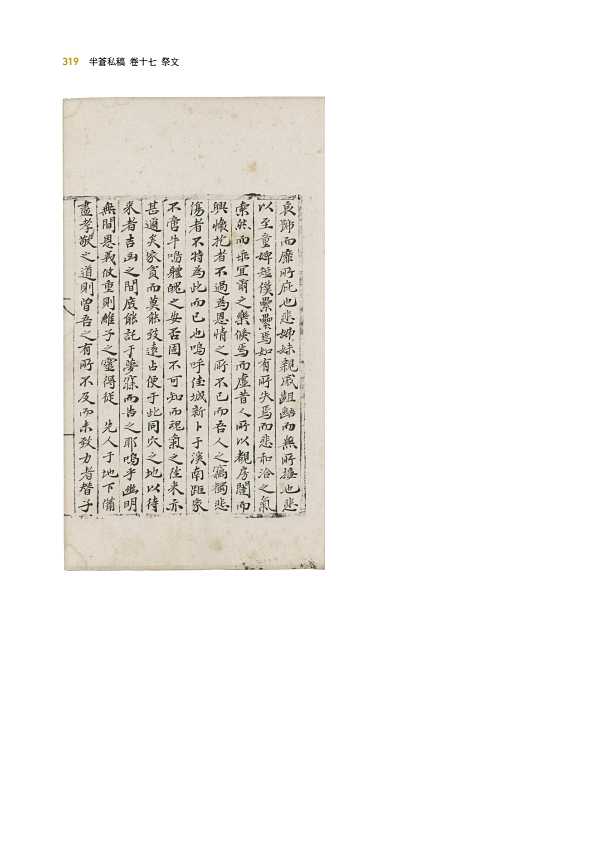 319 半蒼私稿 卷十七 祭文
哀歸而靡所庇也悲姊妹親戚齟齬而無所據也悲
以至童婢尫僕纍纍焉如有所失焉而悲和洽之氣
索然而乖宜爾之樂倐焉而虛昔人所以觀房闥而
興懷抱者不過為恩情之所不已而吾人之寓觸悲
傷者不特為此而已也嗚呼佳城新卜于溪南距家
不啻牛鳴體魄之安否固不可知而魂氣之陟來亦
甚邇矣家貧而莫能致遠占便于此同穴之地以待
來者吉凶之間底能託于夢寐而告之耶嗚乎幽明
無間恩義攸重則維子之靈得從 先人于地下備
盡孝敬之道則曾吾之有所不及而未致力者替子